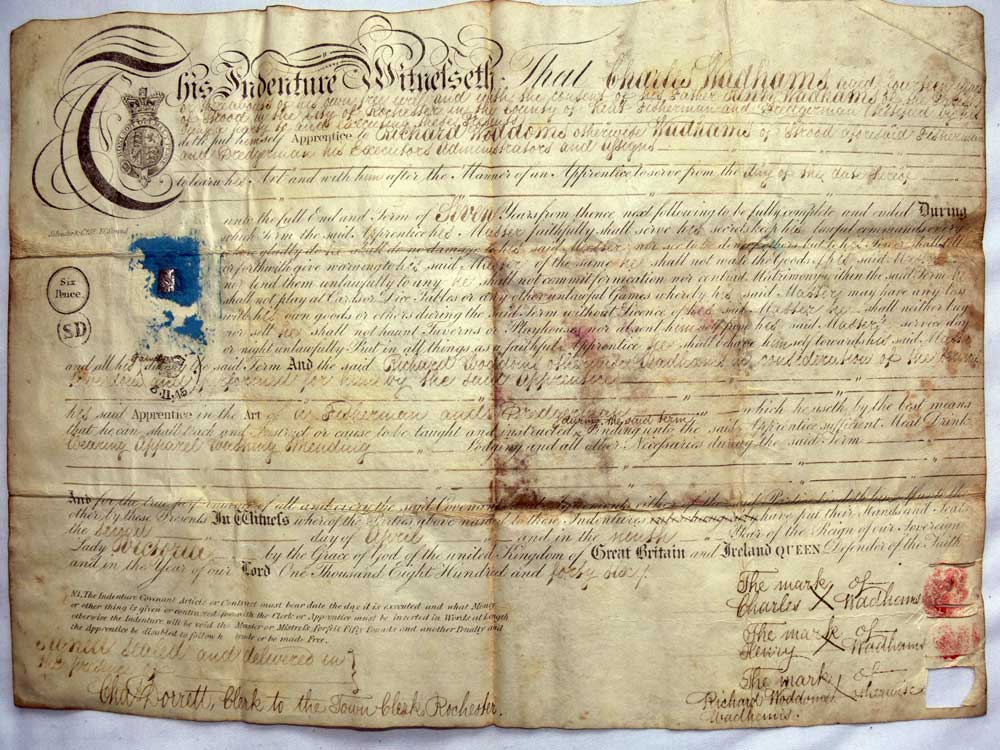 This Indenture Witnesseth That Charles Wadhams aged fourteen years
of his own free will and with the consent of his Father Henry Wadhams
of Strood in the City of Rochester in the County of Kent Fisherman and Dredgerman
doth put himself Apprentice to Richard Woddoms otherwise Wadhams of Strood aforesaid Fisherman
and Dredgerman his Executors Administrators and Assigns
to learn his Art and with him after the Manner of an Apprentice to serve from the day of the date hereof
unto the full End and Term of Seven Years from thence next following to be fully complete and ended During
which Term the said Apprentice his Master faithfully shall serve his secrets keep his lawful commands every
where gladly do he shall do no damage to his said Master nor see to be done of others but to his Power shall
Six
Pence.
or forthwith give warning to his said Master of the same he shall not waste the Goods of his said Master
nor lend them unlawfully to any he shall not commit fornication nor contract Matrimony within the said Term
shall not play at Cards or Dice Tables or any other unlawful Games whereby his said Master may have any loss
(SD)
with his own goods or others during the said Term without Licence of his said Master he shall neither buy
nor sell he shall not haunt Taverns or Playhouses nor absent himself from his said Master's service day
or night unlawfully But in all things as a faithful Apprentice he shall behave himself towards his said Master
and all his during the said Term And the said Richard Woddoms otherwise Wadhams in consideration of the
8.11.45
performed for him by the said Apprentice
his said Apprentice in the Art of a Fisherman and Dredgerman which he useth by the best means
during the said term
that he can shall teach and Instruct or cause to be taught and instructed Finding unto the said Apprentice sufficient Meat Drink
Wearing Apparel Washing Mending Lodging and all other Necessaries during the said Term
And for the true performance of all and every the said Covenants and Agreements either of the said Parties bindeth himself unto the
other by these Presents In Witness whereof the Parties above named to these Indentures have put their Hands and Seals
the Second day of April and in the ninth Year of the Reign of our Sovereign
Lady Victoria by the Grace of God of the united Kingdom of Great Britain and Ireland QUEEN Defender of the Faith
and in the Year of our Lord One Thousand Eight Hundred and forty six
NB, The Indenture Covenant Article or Contract must bear date the day it is executed and what Money
or other thing is given or contracted for with the Clerk or Apprentice must be inserted in Words at Length
otherwise the Indenture will be void the Master or Mistress forfeit Fifty Pounds and another Penalty and
the Apprentice be disabled to follow his trade or be made Free.
The mark of
Charles X Wadhams
The mark of
Henry X Wadhams
The mark of
Richard Woddoms X otherwise
Wadhams.
Signed Sealed and delivered in
the presence of
Chas Dorrett, Clerk to the Town Clerk Rochester.